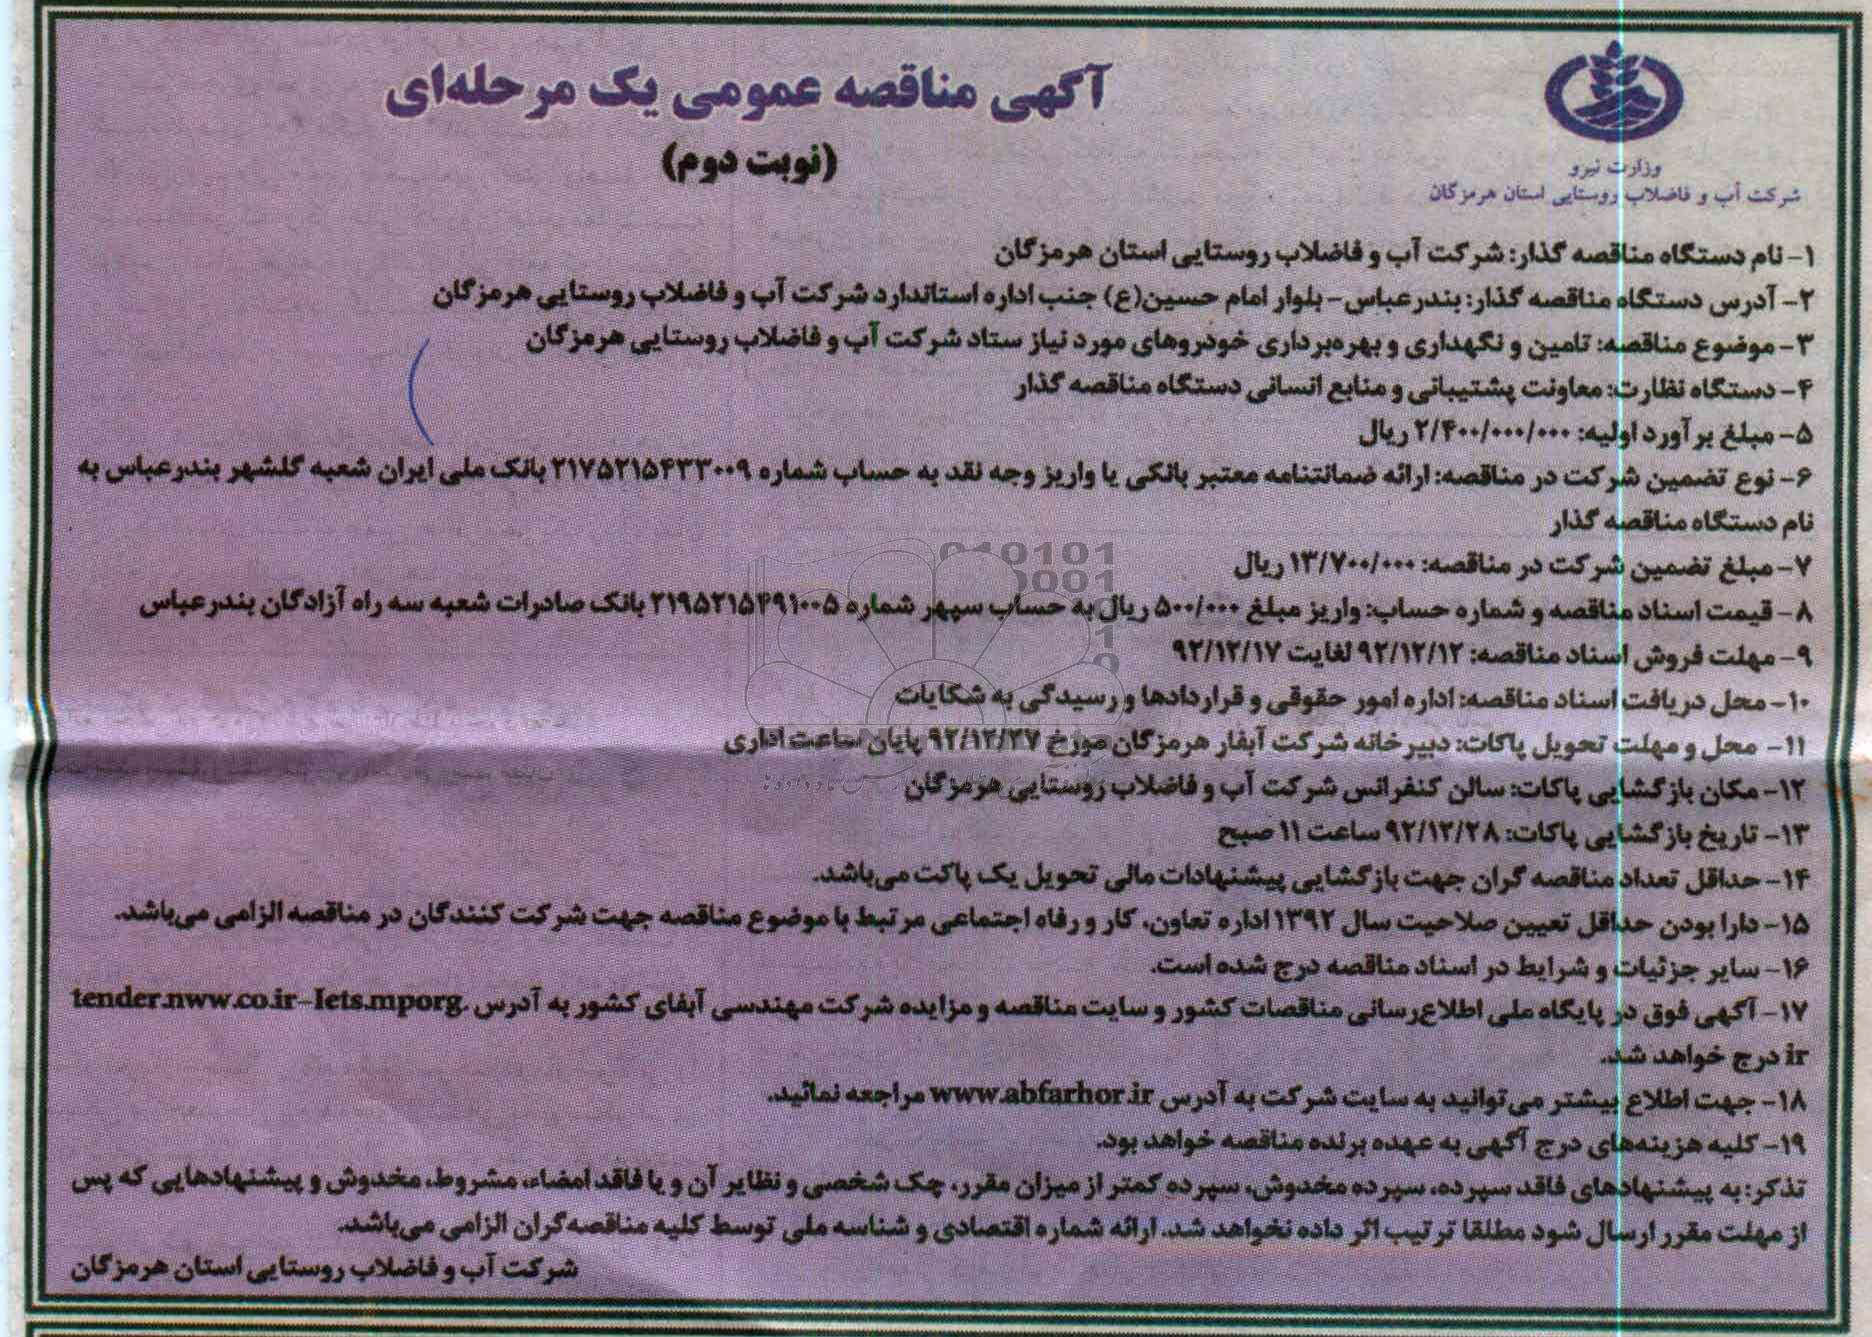 آگهی مناقصه عمومی یک مرحله‌ای
(نوبت دوم)
وزارت نیرو
شرکت آب و فاضلاب روستایی استان هرمزگان
۱- نام دستگاه مناقصه گذار: شرکت آب و فاضلاب روستایی استان هرمزگان
۲- آدرس دستگاه مناقصه گذار: بندرعباس- بلوار امام حسین(ع) جنب اداره استاندارد شرکت آب و فاضلاب روستایی هرمزگان
۳- موضوع مناقصه: تامین و نگهداری و بهره‌برداری خودروهای مورد نیاز ستاد شرکت آب و فاضلاب روستایی هرمزگان
۴- دستگاه نظارت: معاونت پشتیبانی و منابع انسانی دستگاه مناقصه گذار
۵- مبلغ برآورد اولیه: ۲/۴۰۰/۰۰۰/۰۰۰ ریال
۶- نوع تضمین شرکت در مناقصه: ارائه ضمانتنامه معتبر بانکی یا واریز وجه نقد به حساب شماره ۲۱۷۵۲۱۵۴۳۳۰۰۹ بانک ملی ایران شعبه گلشهر بندرعباس به
نام دستگاه مناقصه گذار
۷- مبلغ تضمین شرکت در مناقصه: ۱۳/۷۰۰/۰۰۰ ریال
۸- قیمت اسناد مناقصه و شماره حساب: واریز مبلغ ۵۰۰/۰۰۰ ریال به حساب سپهر شماره ۲۱۹۵۲۱۵۴۹۱۰۰۵ بانک صادرات شعبه سه راه آزادگان بندرعباس
۹- مهلت فروش اسناد مناقصه: ۹۲/۱۲/۱۲ لغایت ۹۲/۱۲/۱۷
۱۰- محل دریافت اسناد مناقصه: اداره امور حقوقی و قراردادها و رسیدگی به شکایات
۱۱- محل و مهلت تحویل پاکات: دبیرخانه شرکت آبفار هرمزگان مورخ ۹۲/۱۲/۲۷ پایان ساعت اداری
۱۲- مکان بازگشایی پاکات: سالن کنفرانس شرکت آب و فاضلاب روستایی هرمزگان
۱۳- تاریخ بازگشایی پاکات: ۹۲/۱۲/۲۸ ساعت ۱۱ صبح
۱۴- حداقل تعداد مناقصه گران جهت بازگشایی پیشنهادات مالی تحویل یک پاکت می‌باشد.
۱۵- دارا بودن حداقل تعیین صلاحیت سال ۱۳۹۲ اداره تعاون، کار و رفاه اجتماعی مرتبط با موضوع مناقصه جهت شرکت کنندگان در مناقصه الزامی می‌باشد.
۱۶- سایر جزئیات و شرایط در اسناد مناقصه درج شده است.
۱۷- آگهی فوق در پایگاه ملی اطلاع‌رسانی مناقصات کشور و سایت مناقصه و مزایده شرکت مهندسی آبفای کشور به آدرس tender.nww.co.ir-Iets.mporg.
ir درج خواهد شد.
۱۸- جهت اطلاع بیشتر می‌توانید به سایت شرکت به آدرس www.abfarhor.ir مراجعه نمائید.
۱۹- کلیه هزینه‌های درج آگهی به عهده برنده مناقصه خواهد بود.
تذکر: به پیشنهادهای فاقد سپرده، سپرده مخدوش، سپرده کمتر از میزان مقرر، چک شخصی و نظایر آن و یا فاقد امضاء، مشروط، مخدوش و پیشنهادهایی که پس
از مهلت مقرر ارسال شود مطلقا ترتیب اثر داده نخواهد شد. ارائه شماره اقتصادی و شناسه ملی توسط کلیه مناقصه‌گران الزامی می‌باشد.
شرکت آب و فاضلاب روستایی استان هرمزگان